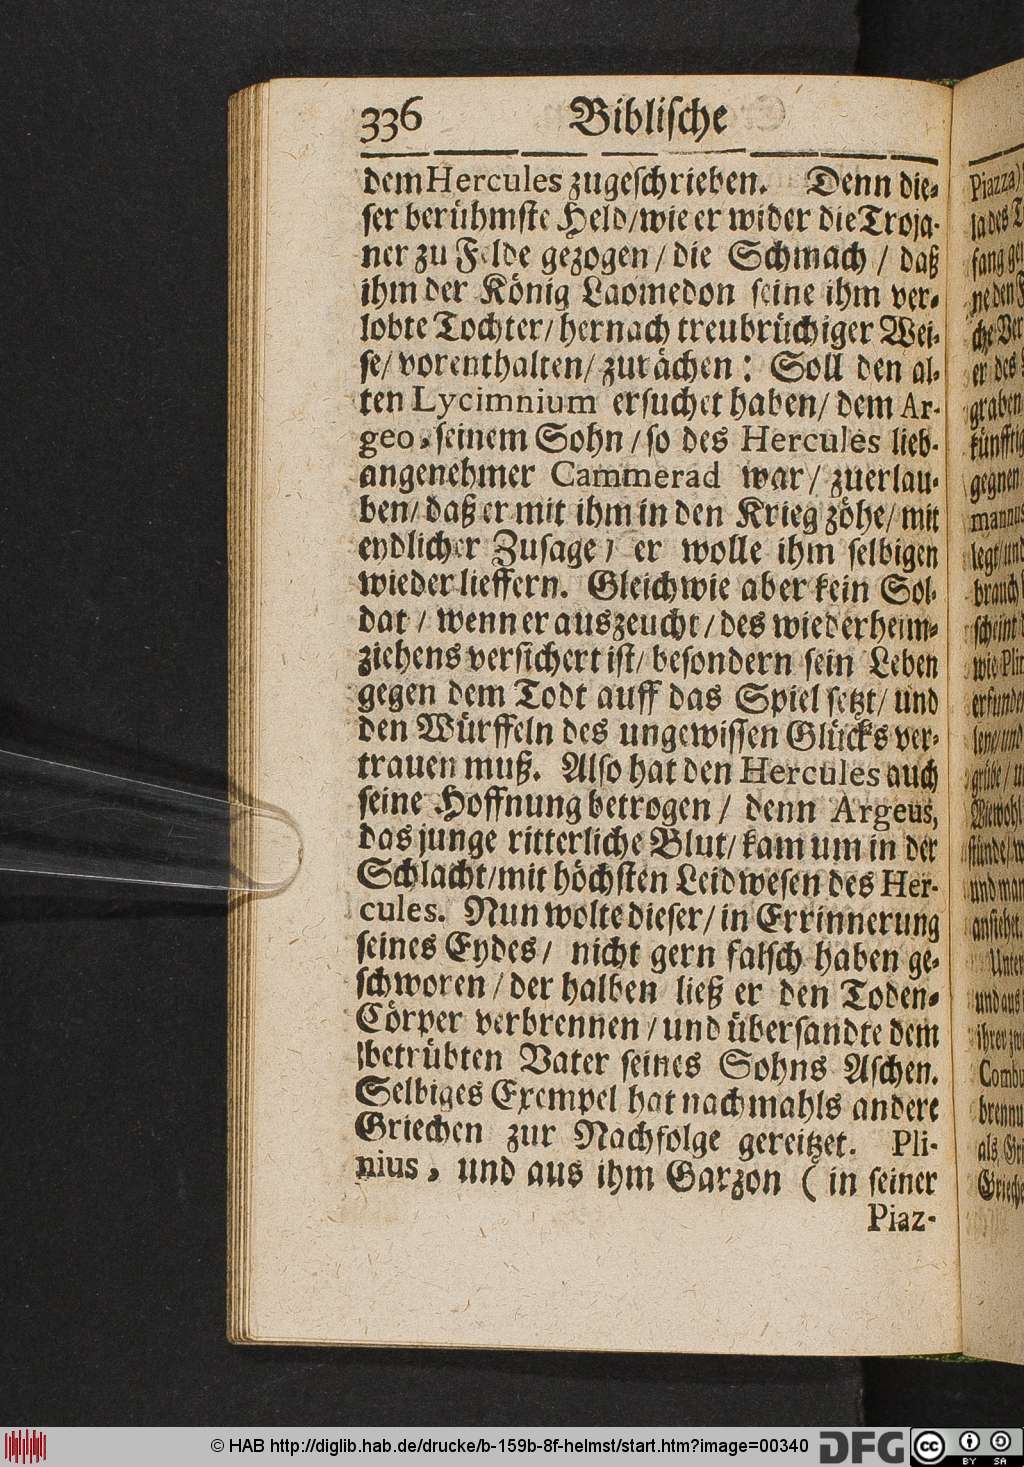 336 Biblische
dem Hercules zugeschrieben. Denn die-
ser berühmste Held/wie er wider die Troja-
ner zu Felde gezogen/ die Schmach/ daß
ihm der König Laomedon seine ihm ver-
lobte Tochter/ hernach treubrüchiger Wei-
se/ vorenthalten/ zurächen: Soll den al-
ten Lycimnium ersuchet haben/ dem Ar-
geo, seinem Sohn/ so des Hercules lieb-
angenehmer Cammerad war/ zuerlau-
ben/ daß er mit ihm in den Krieg zöhe/ mit
eydlicher Zusage/ er wolle ihm selbigen
wieder lieffern. Gleichwie aber kein Sol-
dat/ wenn er auszeucht/ des wiederheim-
ziehens versichert ist/ besondern sein Leben
gegen dem Todt auff das Spiel setzt/ und
den Würffeln des ungewissen Glücks ver-
trauen muß. Also hat den Hercules auch
seine Hoffnung betrogen/ denn Argeus,
das junge ritterliche Blut/ kam um in der
Schlacht/mit höchsten Leidwesen des Her-
cules. Nun wolte dieser/ in Errinnerung
seines Eydes/ nicht gern falsch haben ge-
schworen/ der halben ließ er den Toden-
Cörper verbrennen/ und übersandte dem
betrübten Vater seines Sohns Aschen.
Selbiges Exempel hat nachmahls andere
Griechen zur Nachfolge gereitzet. Pli-
nius, und aus ihm Garzon (in seiner
Piaz-
Piazza)
la des
fang
ne den
che Ver
er des
graben
künfftig
gegnen
mannus
legt/ und
brauch
scheint
wie Plin
erfunden
lene/und
grübe/
Wiewohl
stünde/
und man
ansiehet.
Unter
und aus
ihrer
Combu
brennu
als
Grieche
© HAB http://diglib.hab.de/drucke/b-159b-8f-helmst/start.htm?image=00340 DFG cc BY SA